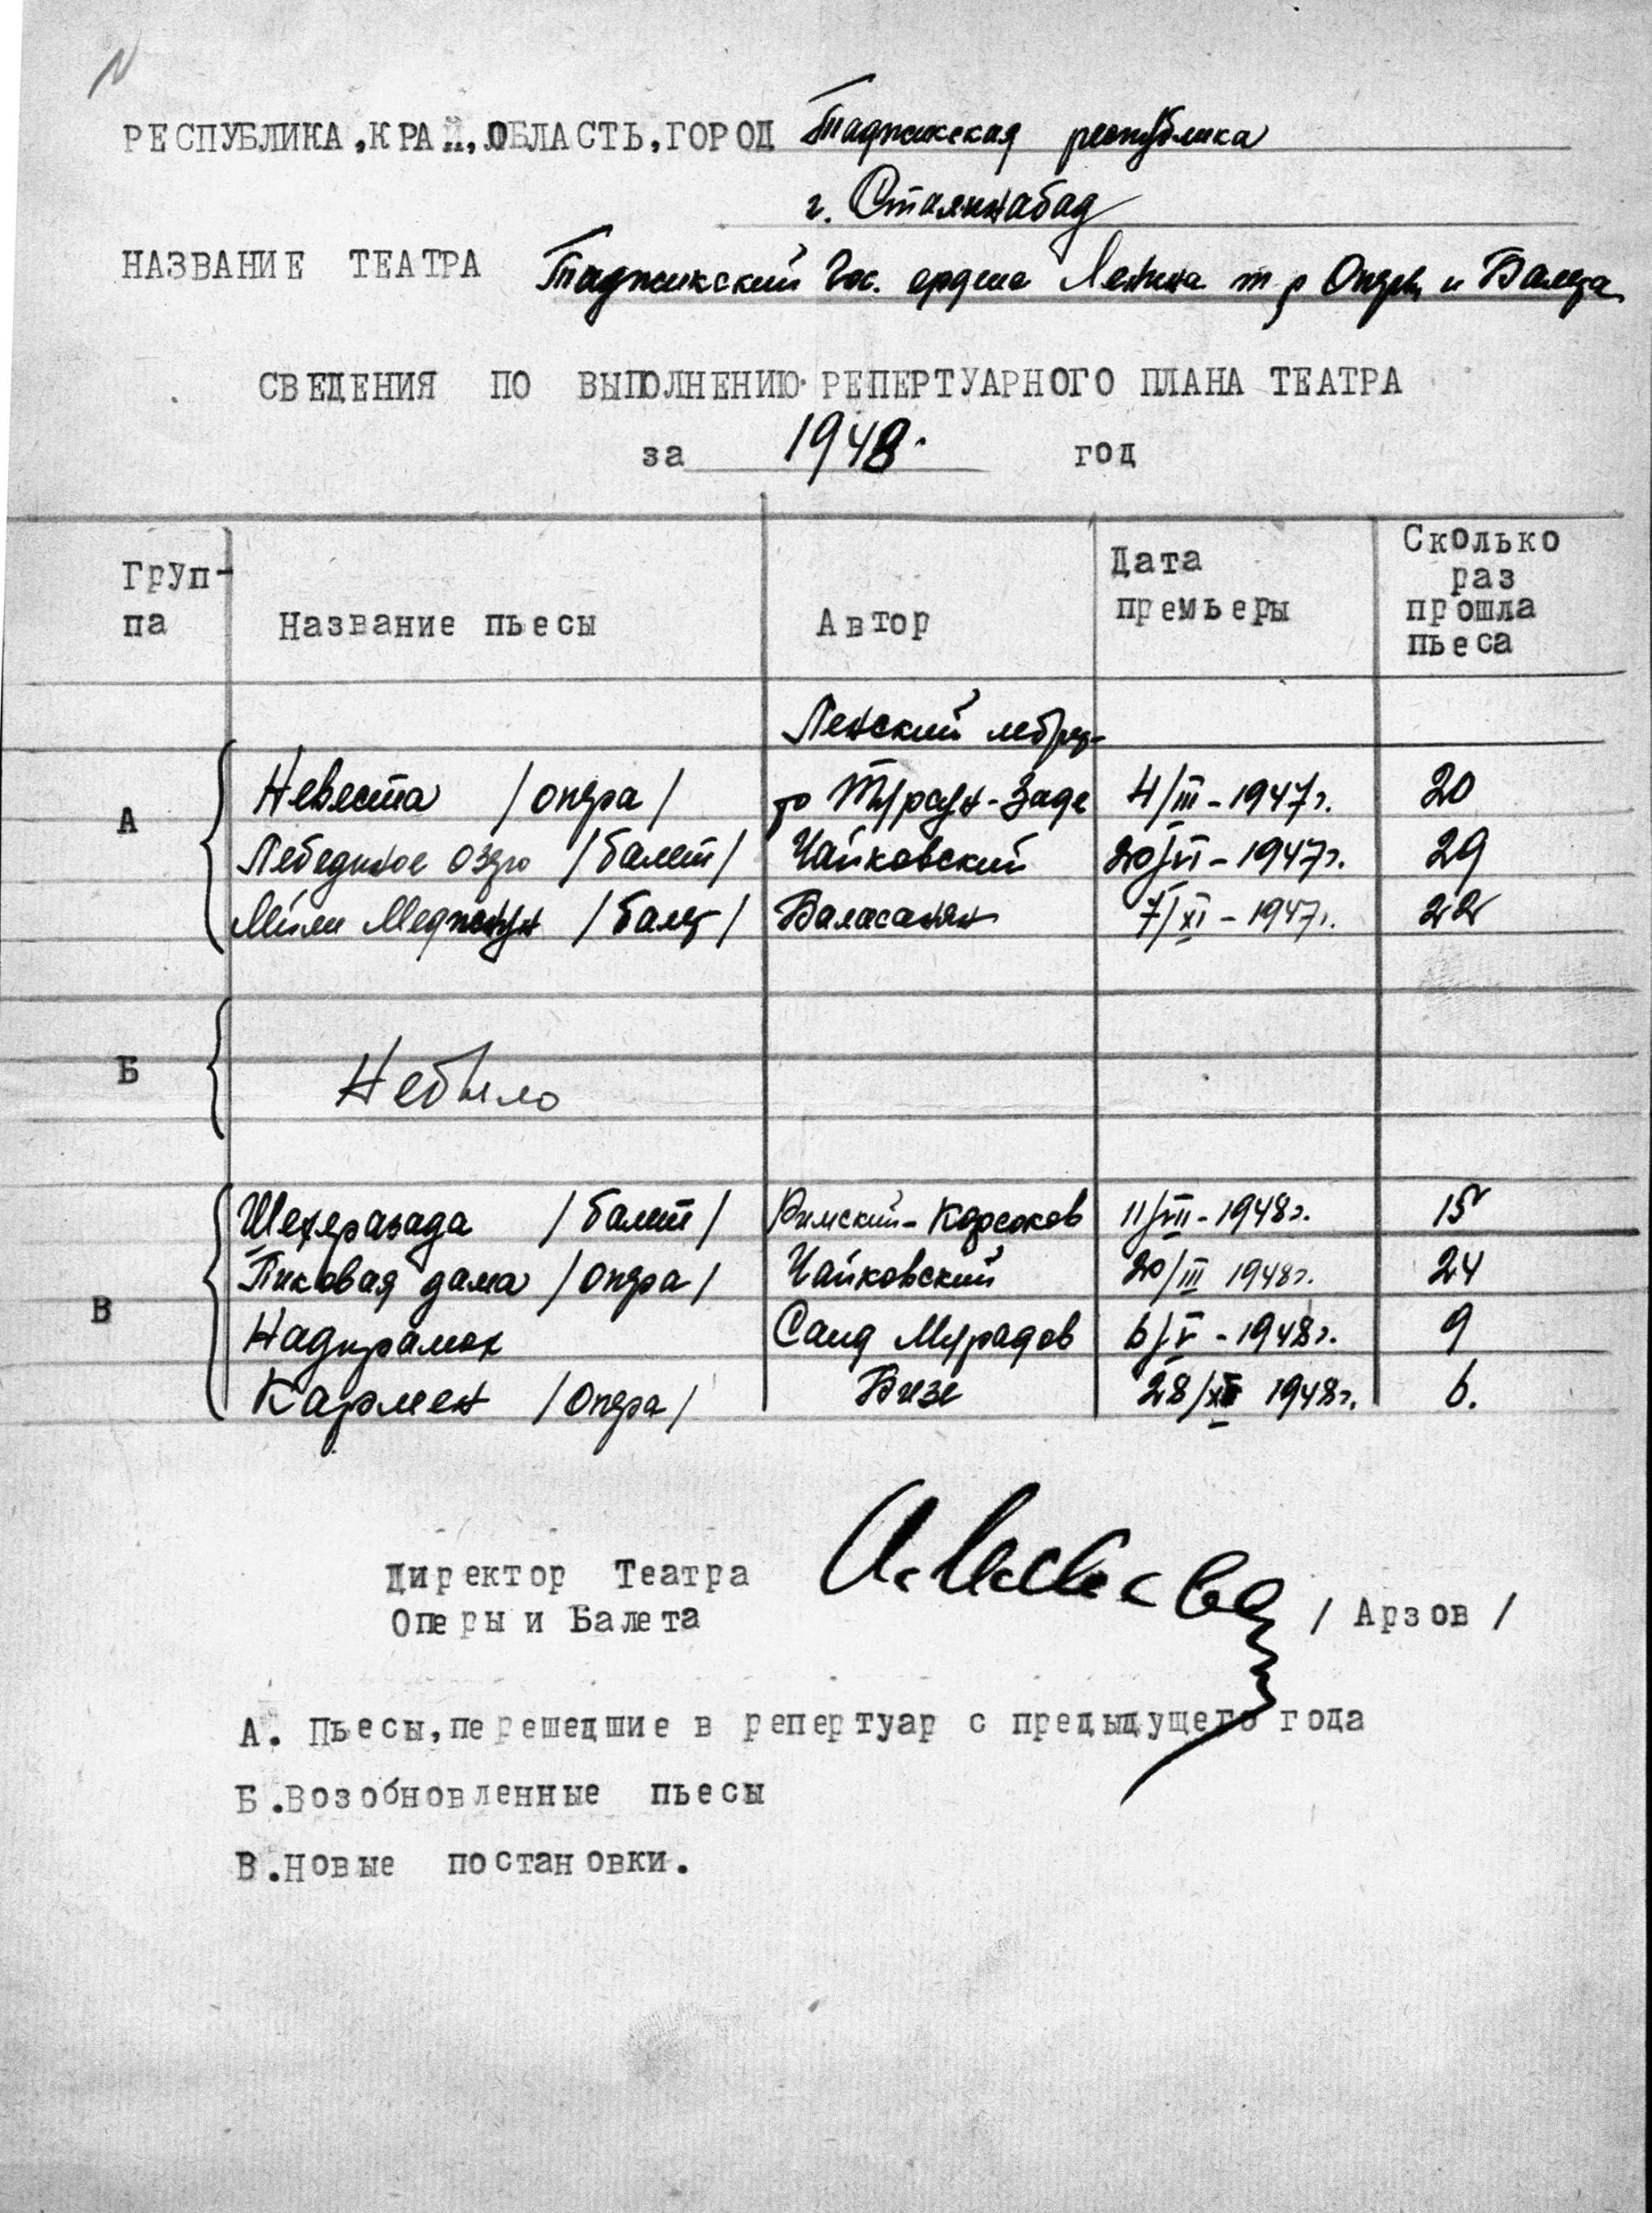 РЕСПУБЛИКА,КРАЙ,ОБЛАСТЬ,ГОРОД Таджикская республика
г. Сталинабад
НАЗВАНИЕ ТЕАТРА Таджикский Гос. ордена Ленина т-р Оперы и Балета
СВЕДЕНИЯ ПО ВЫПОЛНЕНИЮ РЕПЕРТУАРНОГО ПЛАНА ТЕАТРА
за 1948. год
Груп-
па
Название пьесы
Автор
Дата
премьеры
Сколько
раз
прошла
пьеса
Ленский либрет-
А Невеста /опера/ то Турсун-Заде 4/III-1947г. 20
Лебединое озеро /балет/ Чайковский 20/VI-1947г. 29
Лейли Меджнун /балет/ Баласанян 7/XI-1947г. 22
Б Небыло
Шехеразада /балет/ Римский-Корсаков 11/VII-1948г. 15
Пиковая дама /опера/ Чайковский 20/III 1948г. 24
В Надирамох Саид Мурадов 6/V-1948г. 9
Кармен /Опера/ Бизе 28/XII 1948г. 6.
Директор Театра
Оперы и Балета / Арзов /
А. Пьесы,перешедшие в репертуар с предыдущего года
Б.Возобновленные пьесы
В.Новые постановки.